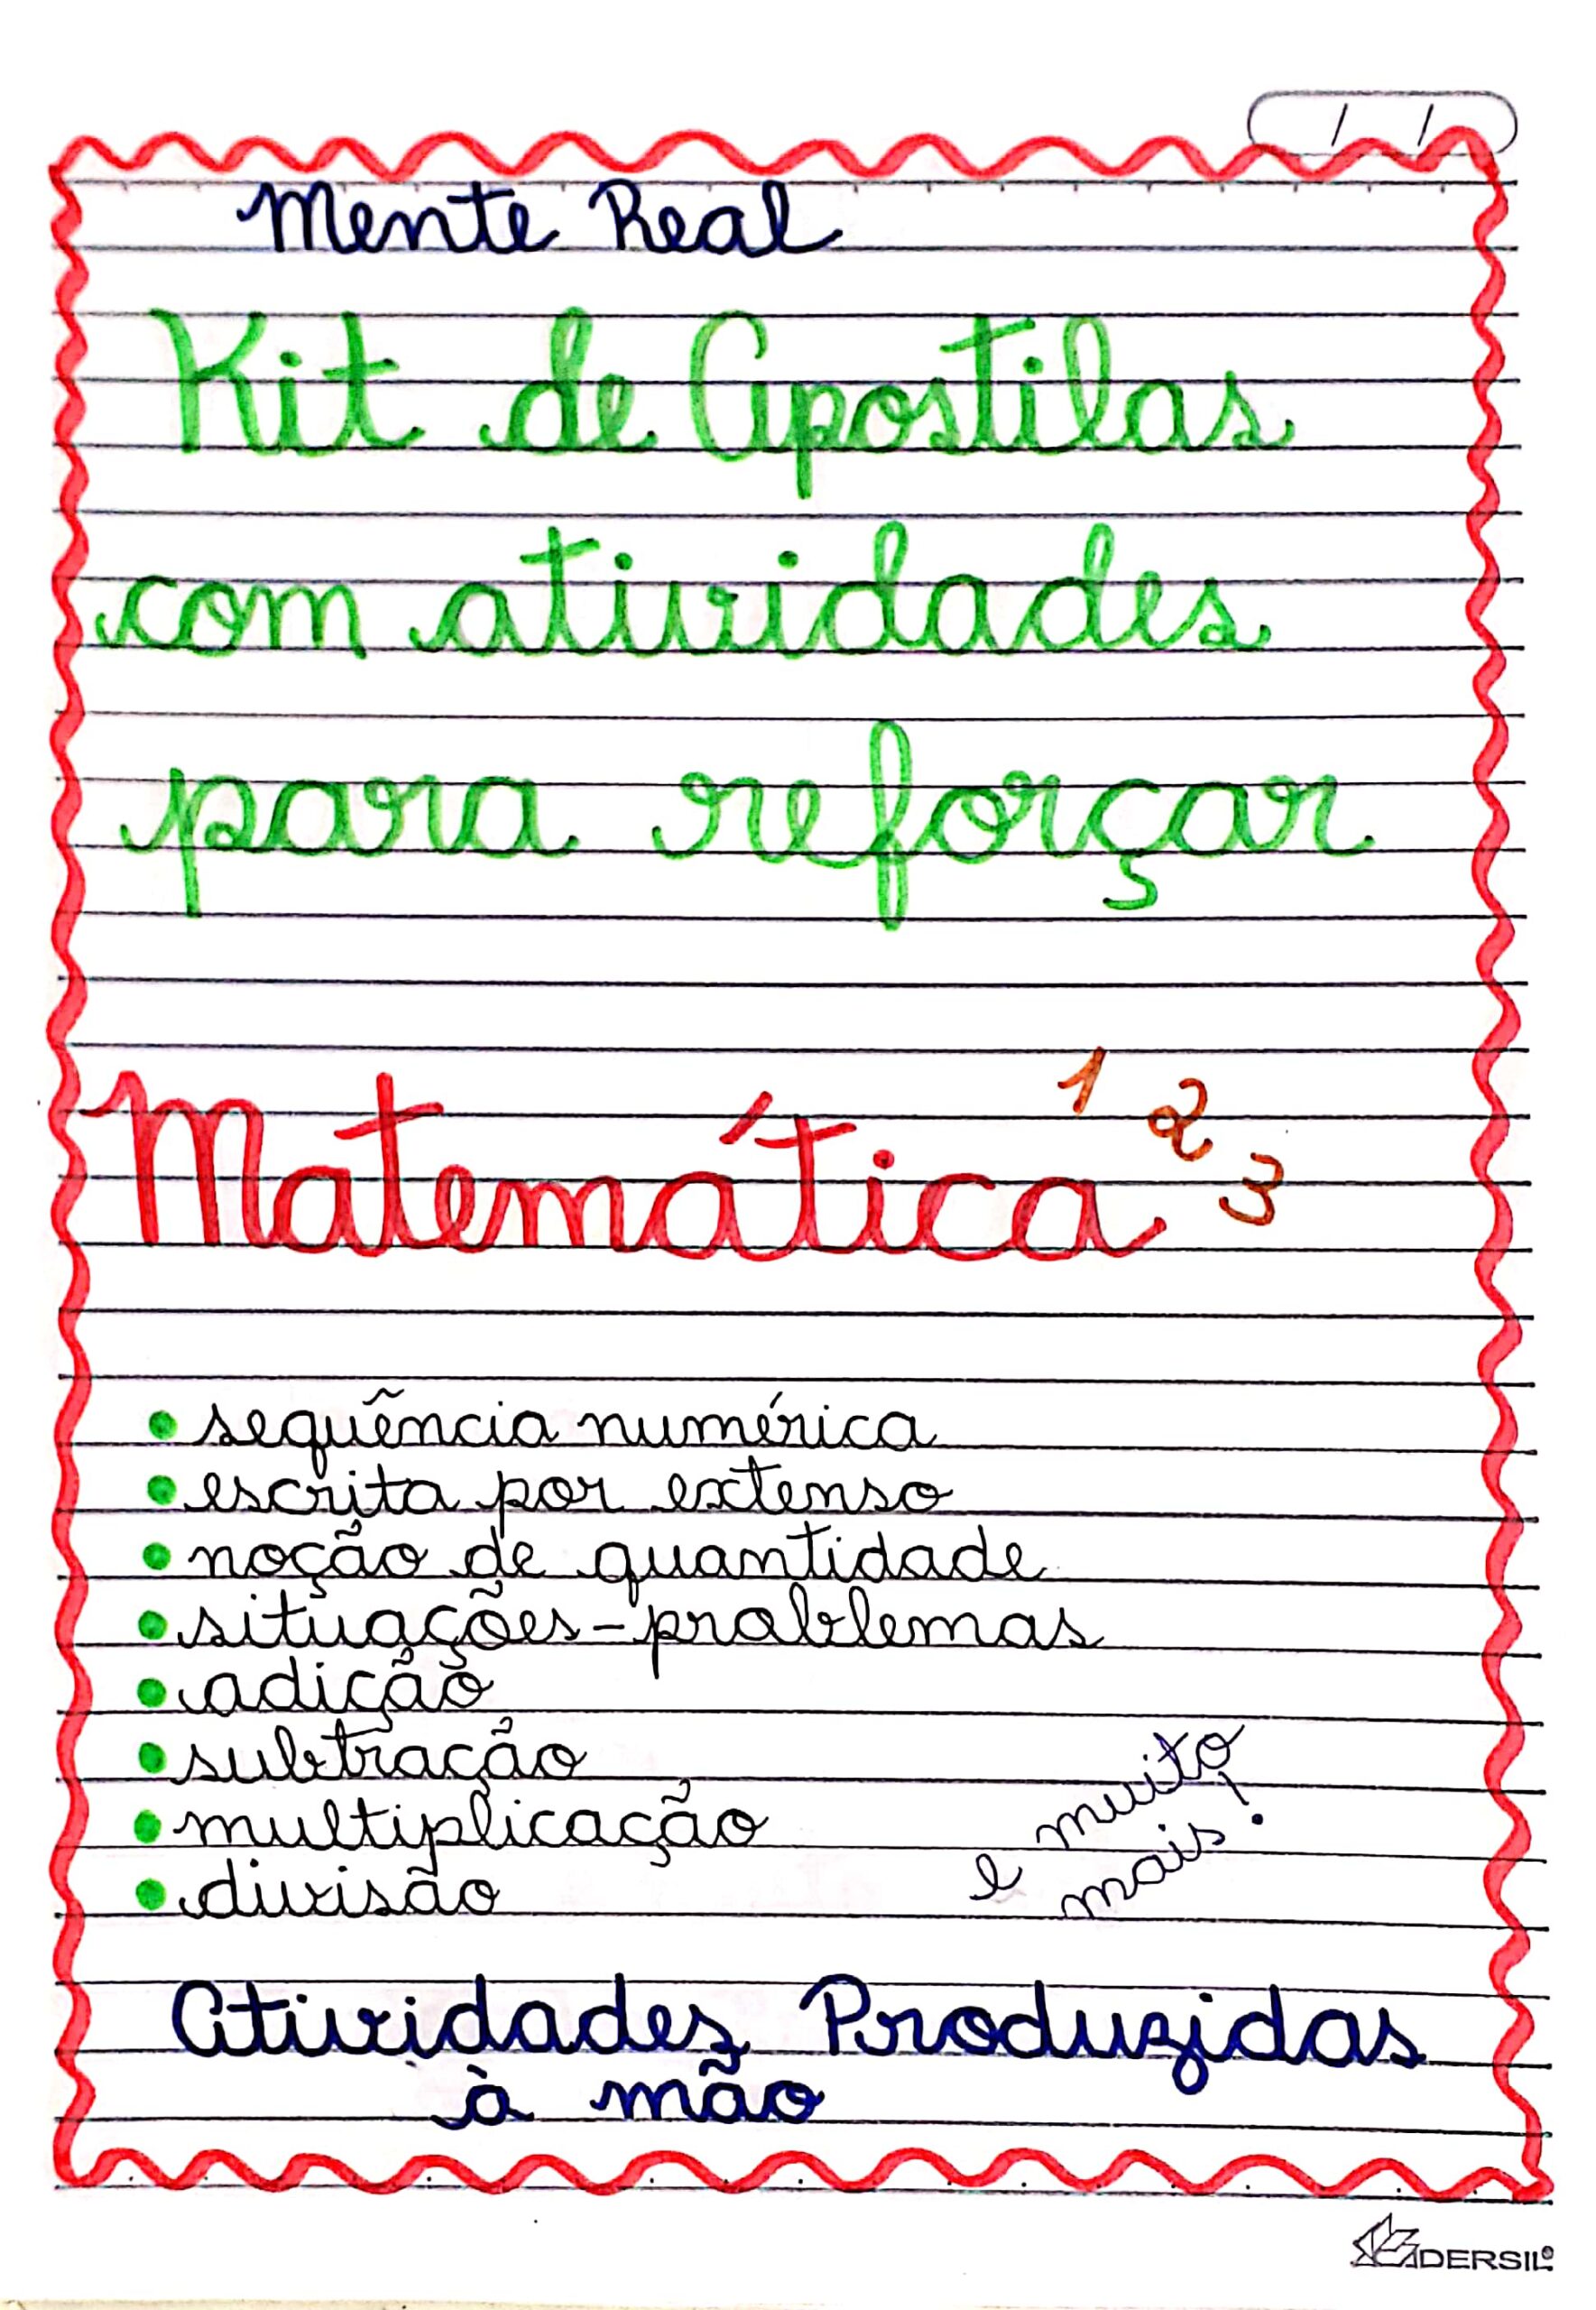 Mente Real
Kit de Apostilas
com atividades
para reforçar
Matemática 1 2 3
• sequência numérica
• escrita por extenso
• noção de quantidade
• situações-problemas
• adição
• subtração
• multiplicação
• divisão
e muito
mais!
Atividades Produzidas
à mão
CADERSIL®